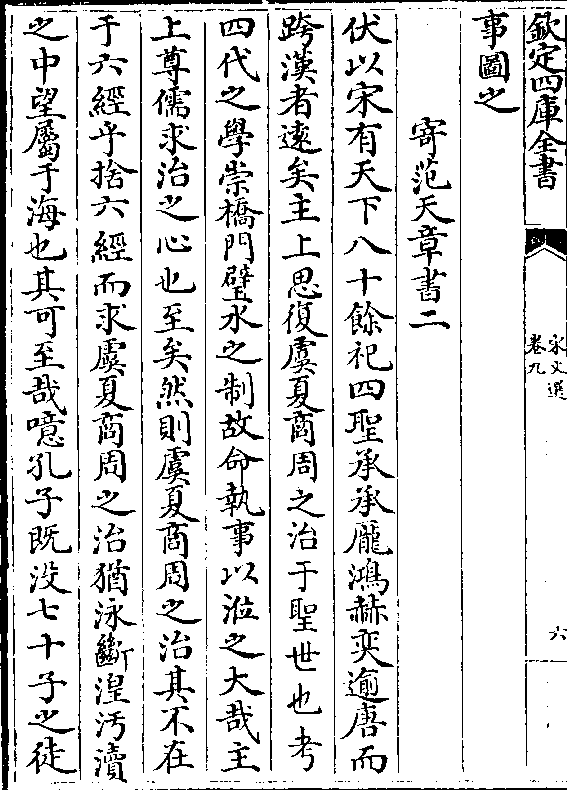 欽定四庫全書
宋文選
卷九
六
事圖之
寄范天章書二
伏以宋有天下八十餘祀四聖承承厖鴻赫奕逾唐而
跨漢者遠矣主上思復虞夏商周之治于聖世也考
四代之學崇橋門璧水之制故命執事以涖之大哉主
上尊儒求治之心也至矣然則虞夏商周之治其不在
于六經乎捨六經而求虞夏商周之治猶泳斷湟汚瀆
之中望屬于海也其可至哉噫孔子既没七十子之徒